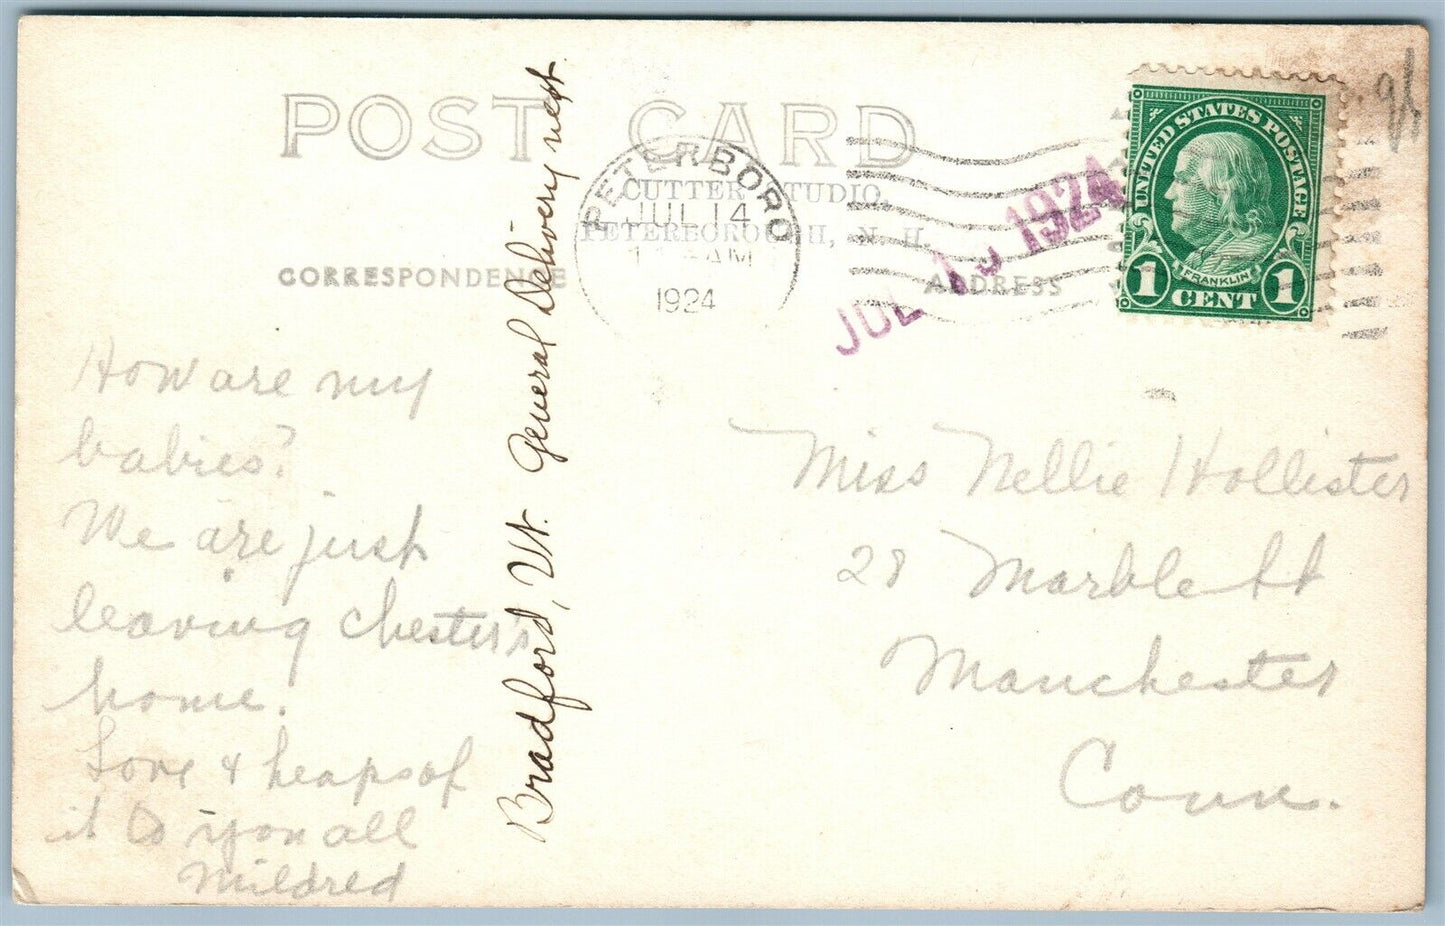 POST CARD
CUTTER STUDIO,
PETERBOROUGH, N. H.
CORRESPONDENCE
ADDRESS
PETERBORO
JUL 14
AM
1924
JUL 15 1924
UNITED STATES POSTAGE
FRANKLIN
1 CENT 1
How are my
babies?
We are just
leaving Chester's
home.
Love & heaps of
it to you all
Mildred
Bradford, Vt. General Delivery next
Miss Nellie Hollister
28 Marble St
Manchester
Conn.